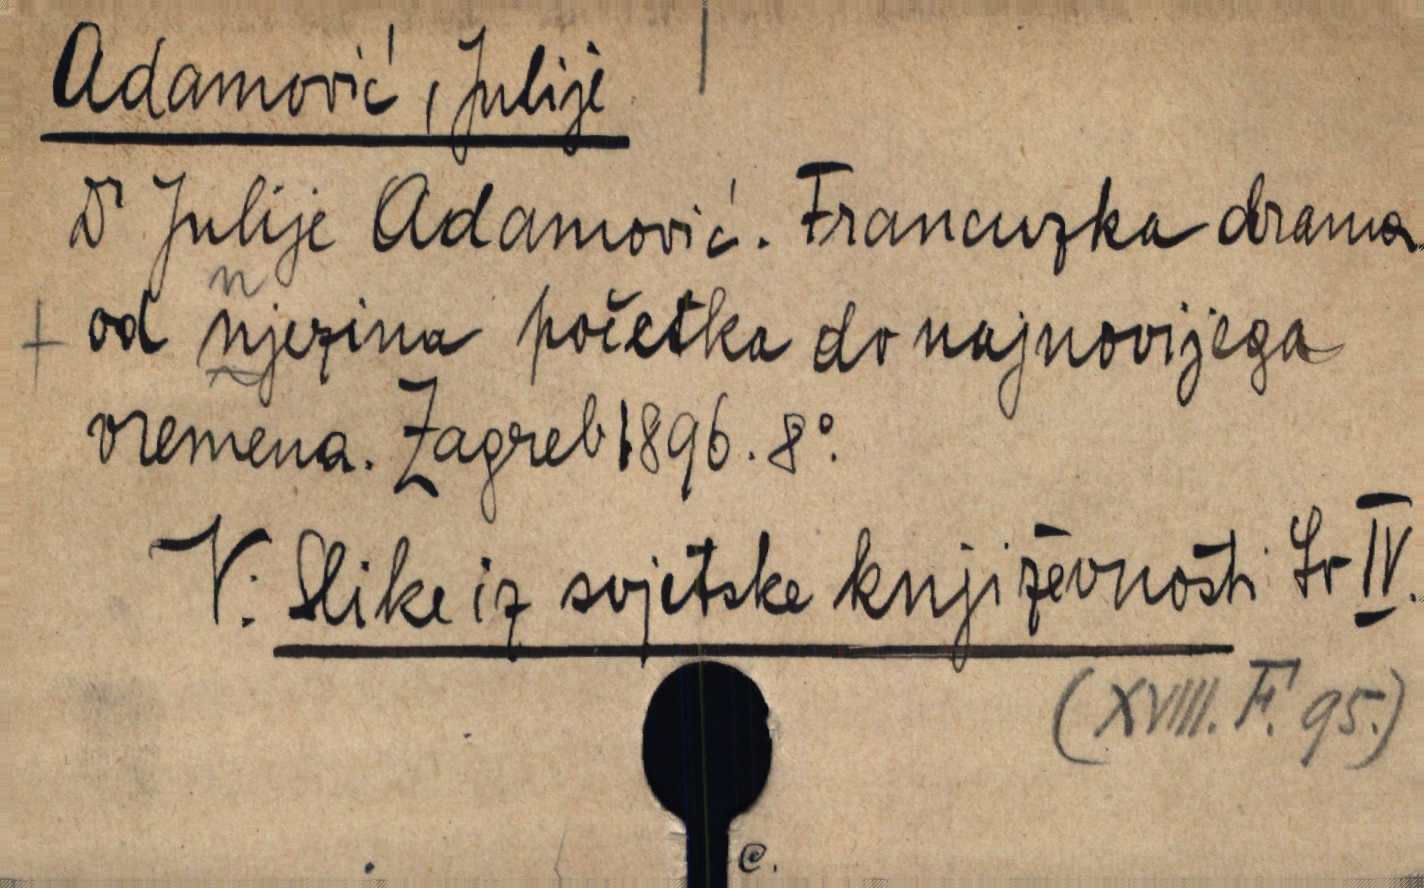 Adamović, Julije
Dr Julije Adamović. Francuzka drama
n
+ od njezina početka do najnovijega
vremena. Zagreb 1896. 8°.
V. Slike iz svjetske književnosti Sv IV.
(XVIII. F. 95.)
e.